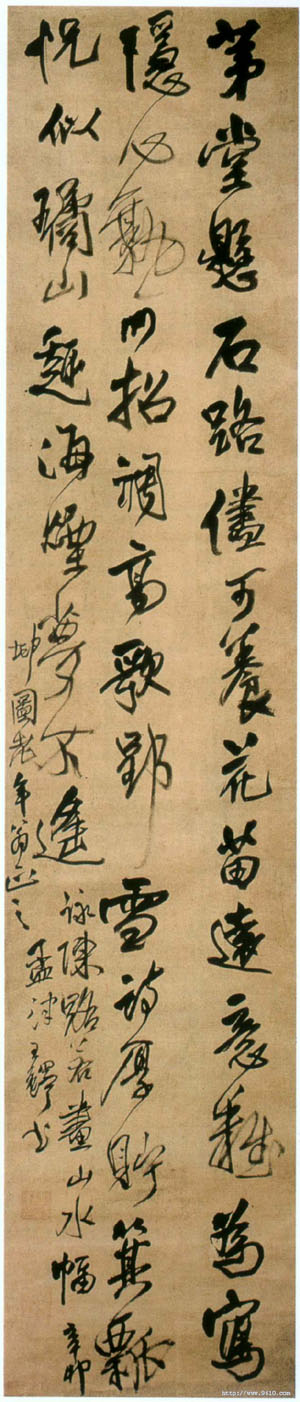 茅堂懸石路儘可養花苗遠意難為寫
隱心勤招調高歌野雪詩厚貯箕瓢
怳似璚山趣海煙夢不遙
詠陳路若畫山水幅辛卯
圖老年翁正之孟津王鐸書
http://www.9610.com